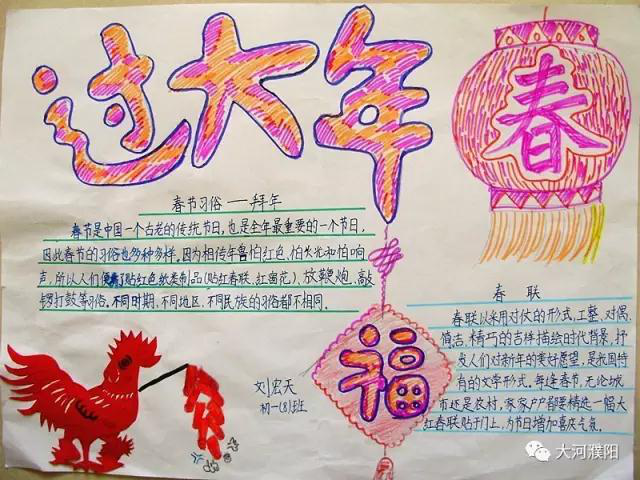 过大年
春
春节习俗——拜年
春节是中国一个古老的传统节日,也是全年最重要的一个节日,
因此春节的习俗也多种多样。因为相传年兽怕红色、怕火光和怕响
声,所以人们便有了贴红色纸类制品(贴红春联、红窗花)、放鞭炮、敲
锣打鼓等习俗。不同时期、不同地区、不同民族的习俗都不相同。
福
刘宏天
初一(8)班
春联
春联以采用对仗的形式,工整、对偶、
简洁、精巧的文字描绘时代背景,抒
发人们对新年的美好愿望,是我国特
有的文学形式。每逢春节,无论城
市还是农村,家家户户都要精选一幅大
红春联贴于门上,为节日增加喜庆气氛。
大河濮阳